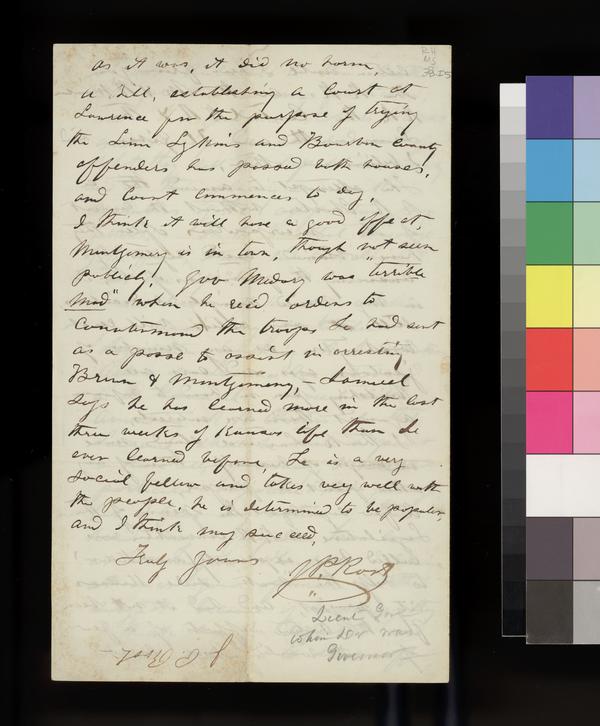 RH
MS
38.D5
as it was, it did no harm,
a Bill, establishing a Court at
Lawrence for the purpose of trying
the Linn Lykins and Bourbon County
offenders has passed both houses,
and Court commences to day,
I think it will have a good effect,
Montgomery is in town, though not seen
publicly, Gov Medary was "terrible
mad" when he rec'd orders to
countermand the troops he had sent
as a posse to assist in arresting
Brown & Montgomery, – Samuel
says he has learned more in the last
three weeks of Kansas life than he
ever learned before, he is a very
social fellow and takes very well with
the people. he is determined to be popular,
and I think may succeed,
Truly Yours
J P. Root
"
Lieut Gov
when Dr was
Governor
J. P. Root